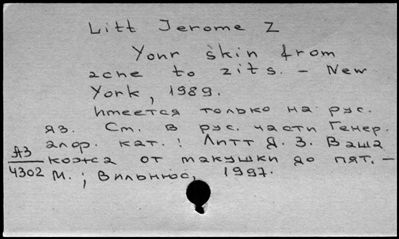 Litt Jerome Z
Your skin from
acne to zits. – New
York, 1989.
Имеется только на рус.
яз. См. в рус. части Генер.
алфр. кат.: Литт Д. З. Ваша
A3 кожа от макушки до пят. –
4302 М.; Вильнюс, 1997.